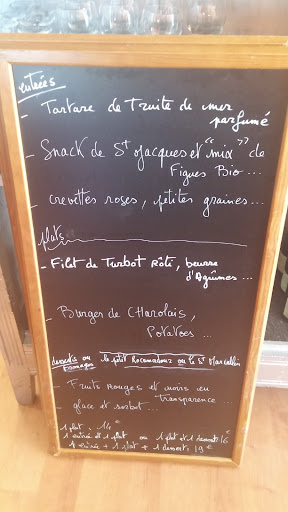 entrées
- Tartare de Truite de mer
parfumé
- Snack de St Jacques et "mix" de
Figues Bio ...
- crevettes roses, petites graines...
plats
- Filet de Turbot Rôti, beurre
d'Agrumes ...
- Burger de Charolais,
Potatoes ...
desserts ou
fromages
le petit Rocamadour ou le St Marcellin
- Fruits Rouges et noirs en
transparence ...
- glace et sorbet ...
1 plat : 14 €
1 entrée et 1 plat ou 1 plat et 1 dessert: 16 €
1 entrée + 1 plat + 1 dessert: 19 €